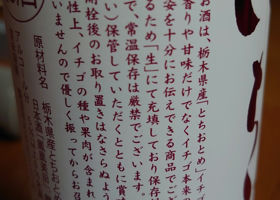 お酒は、栃木県産「とちおとめ」イチゴ
香りや甘味だけでなくイチゴ本来の
安を十分にお伝えできる商品でござ
るため「生」にて充填しており保存
で常温保存は厳禁でございます。
い）保管していただくとともに賞
開栓後のお取り置きはなさらぬよう
性上、イチゴの種や果肉が含まれ
いませんので優しく振ってからお召
原材料名 栃木県産とちおと
日本酒
アルコール分